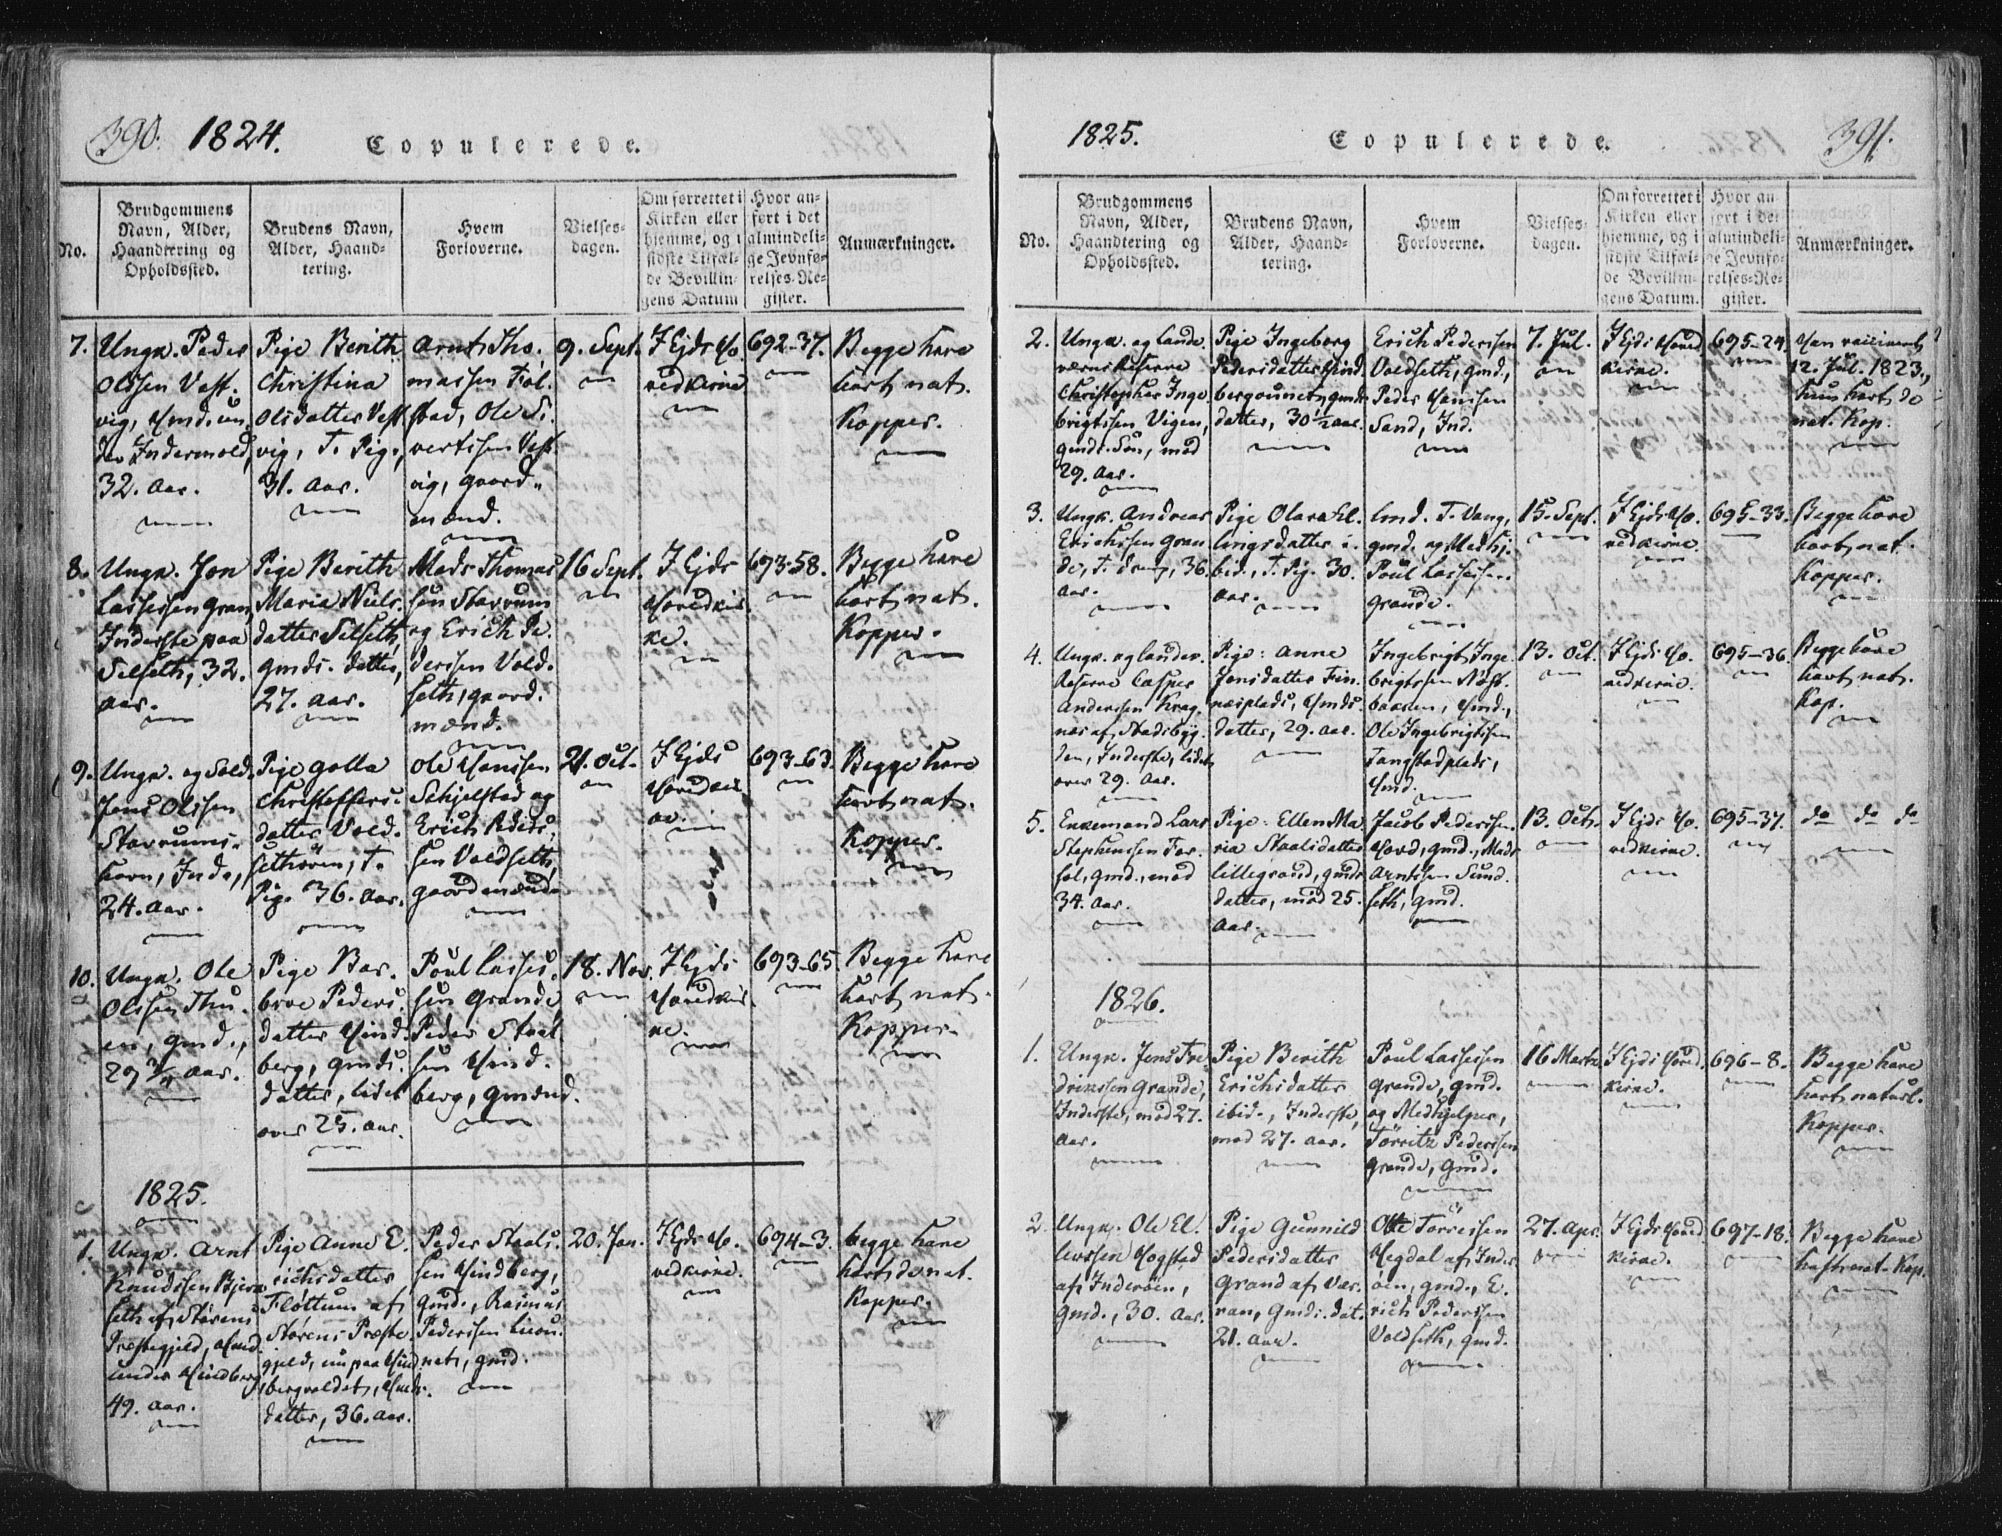 390. 1824. Copulerede.
No.
Brudgommens Navn, Alder, Haandtering og Opholdssted.
Brudens Navn, Alder, Haandtering.
Hvem Forloverne.
Vielsesdagen.
Om forrettet i Kirken eller hjemme, og i sidste Tilfælde Bevillingens Datum
Hvor anført i det almindelige Jevnførelses-Register.
Anmærkninger.
7.
Ungk. Peder
Olssen Vest-
vig, Hmd. un
der Indermold,
32. Aar.
Pige Berith
Christina
Olsdatter Vest
vig, T. Pige,
31. Aar.
Arnt Tho-
massen Fiøl-
stad, Ole Si-
vertssen Vest
vig, gaard-
mænd.
9. Sept.
I Ejds Ho-
vedkirke
692-37.
Begge have
havt nat.
Kopper.
8.
Ungk. Jon
Lassessen Gran,
Inderste paa
Selseth, 32.
Aar.
Pige Berith
Maria Niels-
datter Selseth,
Gmds. datter,
27. Aar.
Mads Thomas
sen Stavrum
og Erich Pe-
derssen Vold-
seth, gaard-
mænd.
16 Sept.
I Ejds
Hovedkir-
ke.
693-58.
Begge have
havt nat.
Kopper.
9.
Ungk. og Sold.
Jens Olssen
Stavrums-
havn, Inds.,
24. Aar.
Pige Golla
Christoffers-
datter Vold-
sethøren, T.
Pig. 36. Aar.
Ole Hanssen
Schjelstad og
Erich Peders-
sen Voldseth,
gaardmænd
21. Oct.
I Ejds
Hovedkir-
ke.
693-63.
Begge have
havt nat.
Kopper.
10.
Ungk. Ole
Olssen Thu-
en, gmd.,
29 3/4 Aar.
Pige Bar-
broe Peders-
datter Hind-
berg, gmds.
datter, lidet
over 25. Aar.
Poul Lasses-
sen Grande
Peder Staal
sen Hind-
berg, gmænd.
18. Nov.
I Ejds
Hovedkir
ke.
693-65.
Begge have
havt nat.
Kopper.
1825.
1.
Ungk. Arnt
Knudssen Bjern
seth af Størens
Præstegjeld, Hmd.
under Hindberg,
49. Aar.
Pige Anne E-
richsdatter
Fløttum af
Størens Præste-
gjeld, nu paa Hind
bergvoldet, Hmds.
datter, 36. Aar.
Peder Staals-
sen Hindberg,
gmd., Rasmus
Pederssen Lieu-
net, gmd.
20. Jan.
I Ejds Ho-
vedkirke.
694-3.
begge have
havt de nat.
Kopper.
1825. Copulerede. 391.
No.
Brudgommens Navn, Alder, Haandtering og Opholdssted.
Brudens Navn, Alder, Haandtering.
Hvem Forloverne.
Vielsesdagen.
Om forrettet i Kirken eller hjemme, og i sidste Tilfælde Bevillingens Datum.
Hvor anført i det almindelige Jevnførelses-Register.
Anmærkninger.
2.
Ungk. og lande
værns Reserve
Christopher Inge
brigtssen Vigen,
gmds. Søn, mod
29. Aar.
Pige Ingeborg
Pedersdatter Hind
bergounet, gmds
datter, 30 1/2 Aar.
Erich Pederssen
Voldseth, gmd.,
Peder Hanssen
Sand, Ind.
7. Jul.
I Ejds Hoved
kirke.
695-24.
Han vaccineret
12. Jul. 1823.,
hun havt de
nat. Kop.
3.
Ungk. Andreas
Erichssen Gran
de, T. dreng, 36.
Aar.
Pige Olava El-
lingsdatter i-
bid., T. Pig. 30.
Aar.
Lmd. T. Vang,
gmd. og Medhj.
Poul Lassessen
Grande.
15. Sept.
I Ejds Ho-
vedkirke.
695-33.
Begge have
havt nat.
Kopper.
4.
Ungk. og landev.
Reserve Casper
Anderssen Krag
næs af Stadsbyg-
den, Inderste, lidet
over 29. Aar.
Pige: Anne
Jensdatter Fin
næsplads, Hmds.
datter, 29. Aar.
Ingebrigt Inge-
brigtssen Nøst-
bakken, Hmd.,
Ole Ingebrigtssen
Tangstadplads,
Hmd.
13. Oct.
I Ejds Ho-
vedkirke.
695-36.
Begge have
havt nat.
Kop.
5.
Enkemand Lars
Stephenssen For-
sol, gmd., mod
34. Aar.
Pige: Ellen Ma
ria Staalsdatter
Lillegrand, gmds.
datter, mod 25.
Aar.
Jacob Pederssen
Hovd, gmd., Mads
Arntssen Sund-
seth, gmd.
13. Oct.
I Ejds Ho-
vedkirke.
695-37.
do do do
1826.
1.
Ungk. Jens Fre
drikssen Grande,
Inderste, mod 27.
Aar.
Pige Berith
Erichsdatter
ibid., Inderste,
mod 27. Aar.
Poul Lassessen
Grande, gmd.
og Medhjelper,
Tørritz Pederssen
Grande, gmd.
16 Marts
I Ejds Hoved
kirke.
696-8.
Begge have
havt naturl.
Kopper.
2.
Ungk. Ole El-
levssen Hogstad
af Inderøen,
gmd., 30. Aar.
Pige Gunnild
Pedersdatter
Grand af Vær-
ran, Gmds. dat.
21. Aar.
Otte Tørressen
Hegdal af Inder
øen, gmd., E-
rich Pederssen
Voldseth, gmd.
27. Apr.
I Ejds Hoved
kirke.
697-18.
Begge have
havt nat. Kop.